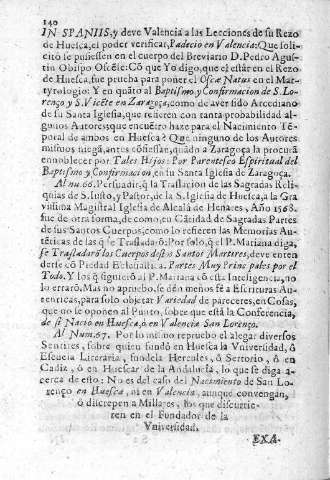 140
IN SPANIIS, y deve Valencia a las Lecciones de su Rezo
de Huesca, el poder verificar, Padecio en Valencia: Que soli-
citò se pusiessen en el cuerpo del Breviario D. Pedro Agus-
tin Obispo Oscēse. Cō que Yo digo, que el estàr en el Rezo
de Huesca, fue prueba para poner el Oscæ Natus en el Mar-
tyrologio: Y en quāto al Baptismo, y Confirmacion de S. Lo-
renço y S. Vicēte en Zaragoça, como de aver sido Arcediano
de su Santa Iglesia, que refieren con tanta probabilidad al-
gunos Autores; que encuētro haze para el Nacimiento Tē-
poral de ambos en Huesca? Que ninguno de los Autores
mismos niega, antes cōfiessan, quādo a Zaragoça la procurā
ennoblecer por Tales Hijos: Por Parentesco Espiritual del
Baptismo, y Confirmacion, en su Santa Iglesia de Zaragoça.
Al nu. 66. Persuadir, q̄ la Traslacion de las Sagradas Reli-
quias de S. Justo, y Pastor, de la S. Iglesia de Huesca, a la Gra
vissima Magistral Iglesia de Alcalà de Henares, Año 1568.
fue de otra forma, de como, en Cātidad de Sagradas Partes
de sus Santos Cuerpos, como lo refieren las Memorias Au-
tēticas de las q̄ se Trasladarō: Por solo, q̄ el P. Mariana diga,
se Trasladarō los Cuerpos destos Santos Martires, deve enten-
derse cō Piedad Eclesiastica. Partes Muy Principales por el
Todo. Y los q̄ siguierō al P. Mariana cō esta Inteligencia, no
lo erraró. Mas no apruebo, se dèn menos fè a Escrituras Au-
tenticas, para solo objetar Variedad de pareceres, en Cosas,
que no se oponen al Punto, sobre que està la Conferencia,
de si Naciò en Huesca, ò en Valencia San Lorenço.
Al Num. 67. Por lo mismo repruebo el alegar diversos
Sentires, sobre quien fundò en Huesca la Vniversidad, ò
Escuela Literaria, fundela Hercules, ò Sertorio, ò en
Cadiz, ò en Huescar de la Andalucia, lo que se diga a-
cerca de esto: No es del caso del Nacimiento de San Lo-
renço en Huesca, ni en Valencia, aunque convengan,
ò discrepen a Millares, los que discurrie-
ren en el Fundador de la
Vniversidad.
EXA-